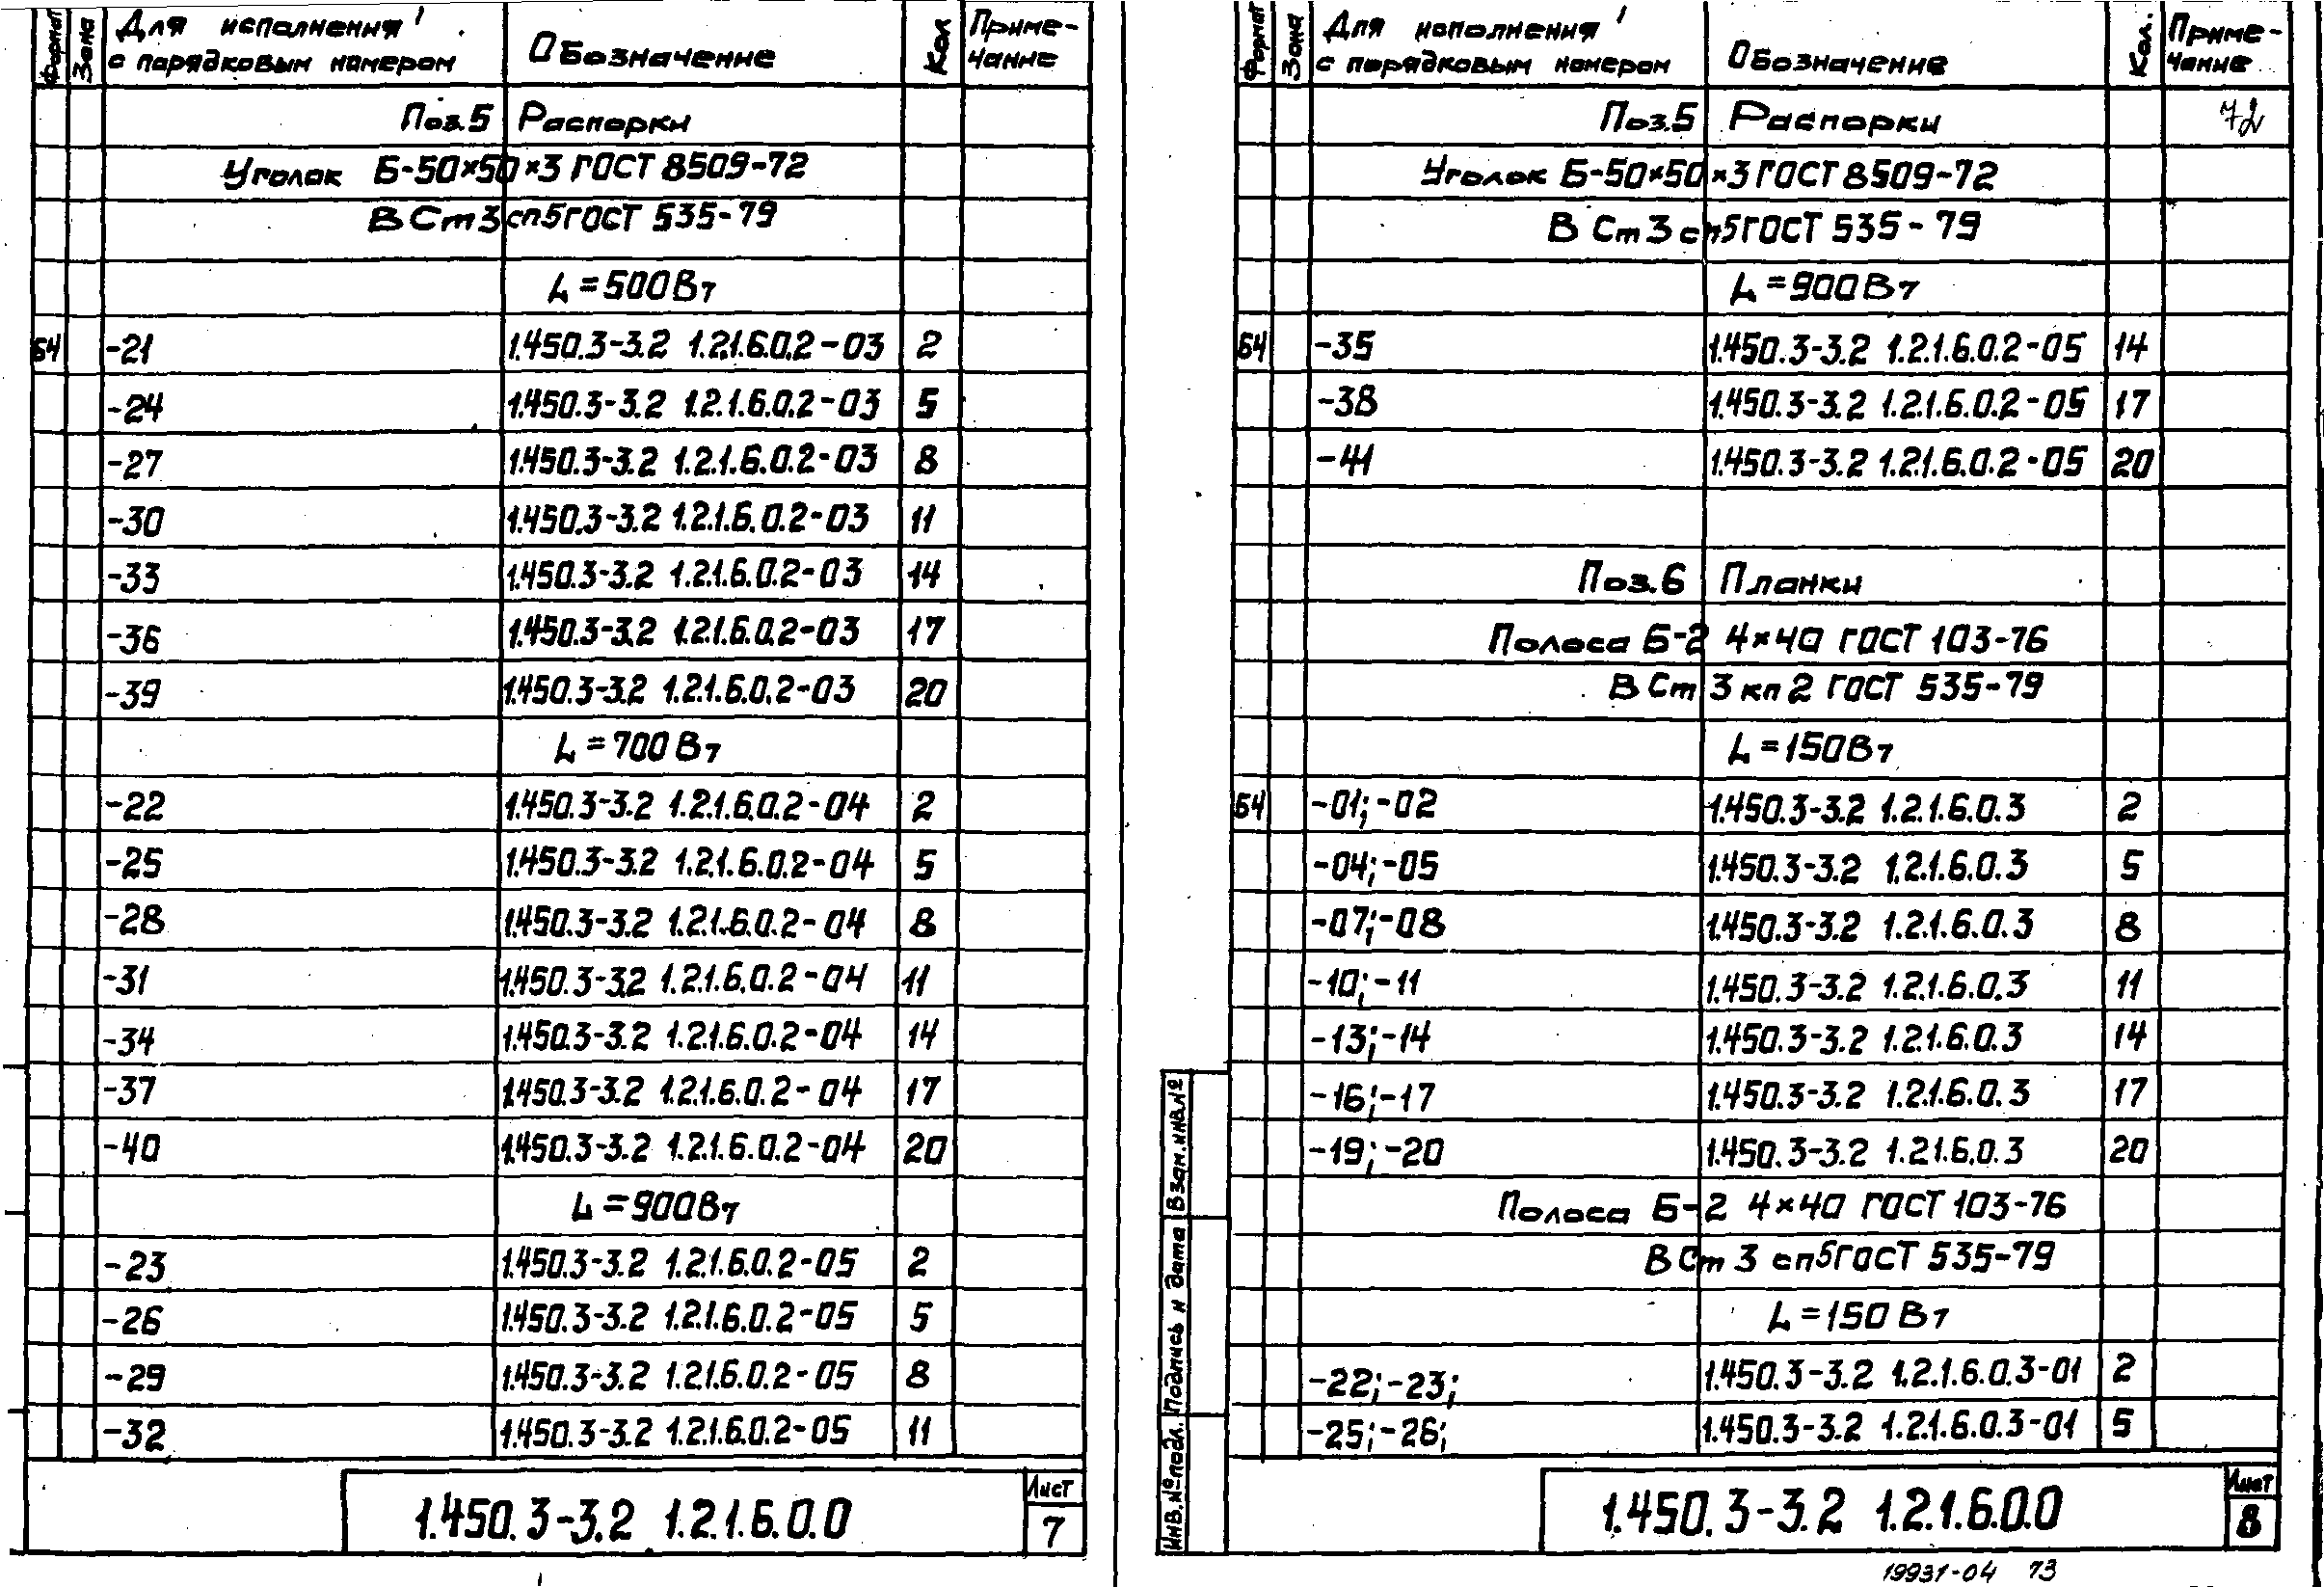 Формат Зона Для исполнения с порядковым номером Обозначение Кол Примечание
Поз.5 Распорки
Уголок Б-50×50×3 ГОСТ 8509-72
ВСт3сп5ГОСТ 535-79
L=500Вт
БЧ -21 1.450.3-3.2 1.2.1.6.0.2-03 2
-24 1.450.3-3.2 1.2.1.6.0.2-03 5
-27 1.450.3-3.2 1.2.1.6.0.2-03 8
-30 1.450.3-3.2 1.2.1.6.0.2-03 11
-33 1.450.3-3.2 1.2.1.6.0.2-03 14
-36 1.450.3-3.2 1.2.1.6.0.2-03 17
-39 1.450.3-3.2 1.2.1.6.0.2-03 20
L=700Вт
-22 1.450.3-3.2 1.2.1.6.0.2-04 2
-25 1.450.3-3.2 1.2.1.6.0.2-04 5
-28 1.450.3-3.2 1.2.1.6.0.2-04 8
-31 1.450.3-3.2 1.2.1.6.0.2-04 11
-34 1.450.3-3.2 1.2.1.6.0.2-04 14
-37 1.450.3-3.2 1.2.1.6.0.2-04 17
-40 1.450.3-3.2 1.2.1.6.0.2-04 20
L=900Вт
-23 1.450.3-3.2 1.2.1.6.0.2-05 2
-26 1.450.3-3.2 1.2.1.6.0.2-05 5
-29 1.450.3-3.2 1.2.1.6.0.2-05 8
-32 1.450.3-3.2 1.2.1.6.0.2-05 11
1.450.3-3.2 1.2.1.6.0.0
Лист
7
Формат Зона Для исполнения с порядковым номером Обозначение Кол. Примечание
Поз.5 Распорки 72
Уголок Б-50×50×3 ГОСТ 8509-72
ВСт3сп5ГОСТ 535-79
L=900Вт
БЧ -35 1.450.3-3.2 1.2.1.6.0.2-05 14
-38 1.450.3-3.2 1.2.1.6.0.2-05 17
-41 1.450.3-3.2 1.2.1.6.0.2-05 20
Поз.6 Планки
Полоса Б-2 4×40 ГОСТ 103-76
ВСт 3 кп 2 ГОСТ 535-79
L=150Вт
БЧ -01;-02 1.450.3-3.2 1.2.1.6.0.3 2
-04;-05 1.450.3-3.2 1.2.1.6.0.3 5
-07;-08 1.450.3-3.2 1.2.1.6.0.3 8
-10;-11 1.450.3-3.2 1.2.1.6.0.3 11
-13;-14 1.450.3-3.2 1.2.1.6.0.3 14
-16;-17 1.450.3-3.2 1.2.1.6.0.3 17
-19;-20 1.450.3-3.2 1.2.1.6.0.3 20
Полоса Б-2 4×40 ГОСТ 103-76
ВСт 3 сп5ГОСТ 535-79
L=150 Вт
-22;-23; 1.450.3-3.2 1.2.1.6.0.3-01 2
-25;-26; 1.450.3-3.2 1.2.1.6.0.3-01 5
Инв.№подл. Подпись и дата Взам.инв.№
1.450.3-3.2 1.2.1.6.0.0
Лист
8
19931-04 73